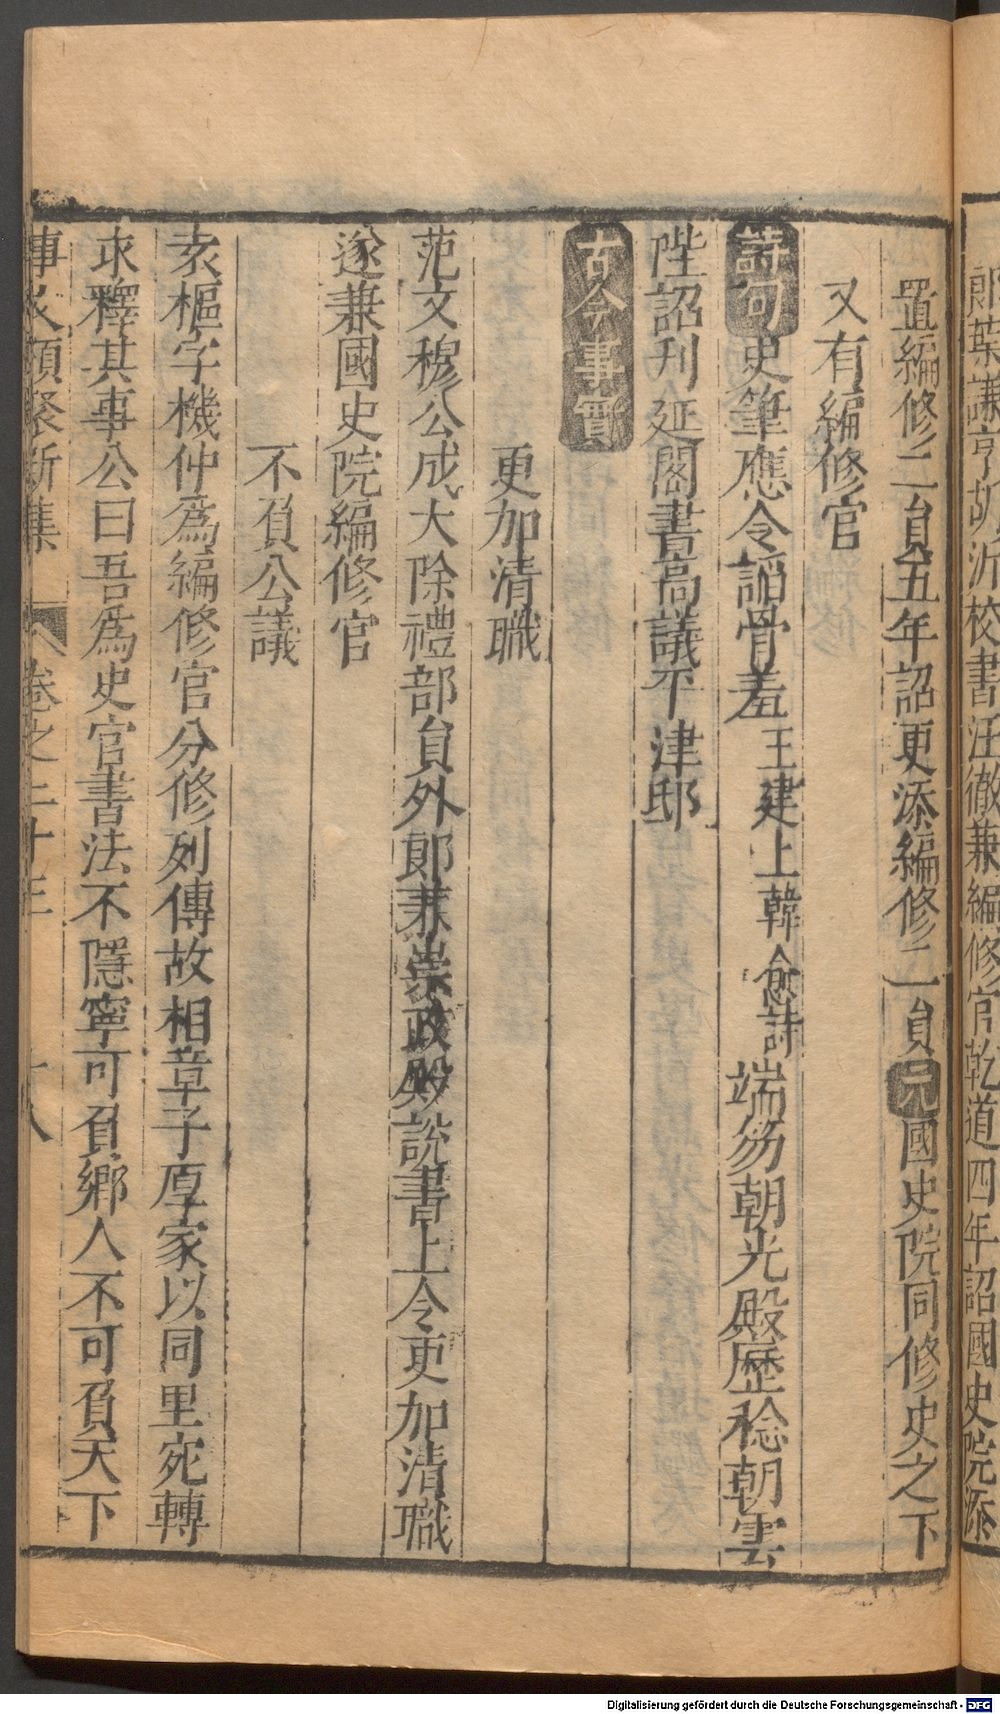 郎葉謙亨胡沂校書汪徹兼編修官乾道四年詔國史院添
置編修二員五年詔更添編修二員元國史院同修史之下
又有編修官
詩句史筆應令謟骨羞王建上韓愈詩端笏朝光殿歷稔朝雲
陛詔刋延閣書高議平津邸
古今事實
更加清職
范文穆公成大除禮部員外郎兼崇政殿說書上令吏加清職
遂兼國史院編修官
不負公議
袁樞字機仲為編修官分修列傳故相章子厚家以同里宛轉
求釋其事公曰吾為史官書法不隱寧可負鄉人不可負天下
事文類聚新集 卷之二十三 十八
Digitalisierung gefördert durch die Deutsche Forschungsgemeinschaft - DFG